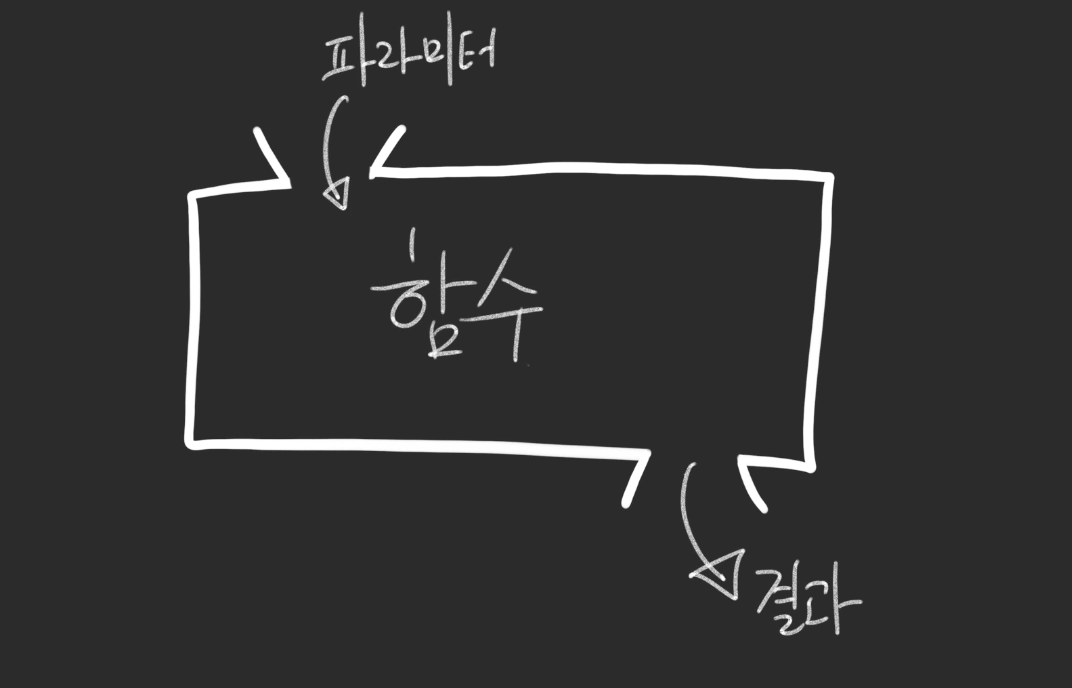 파라미터
함수
결과